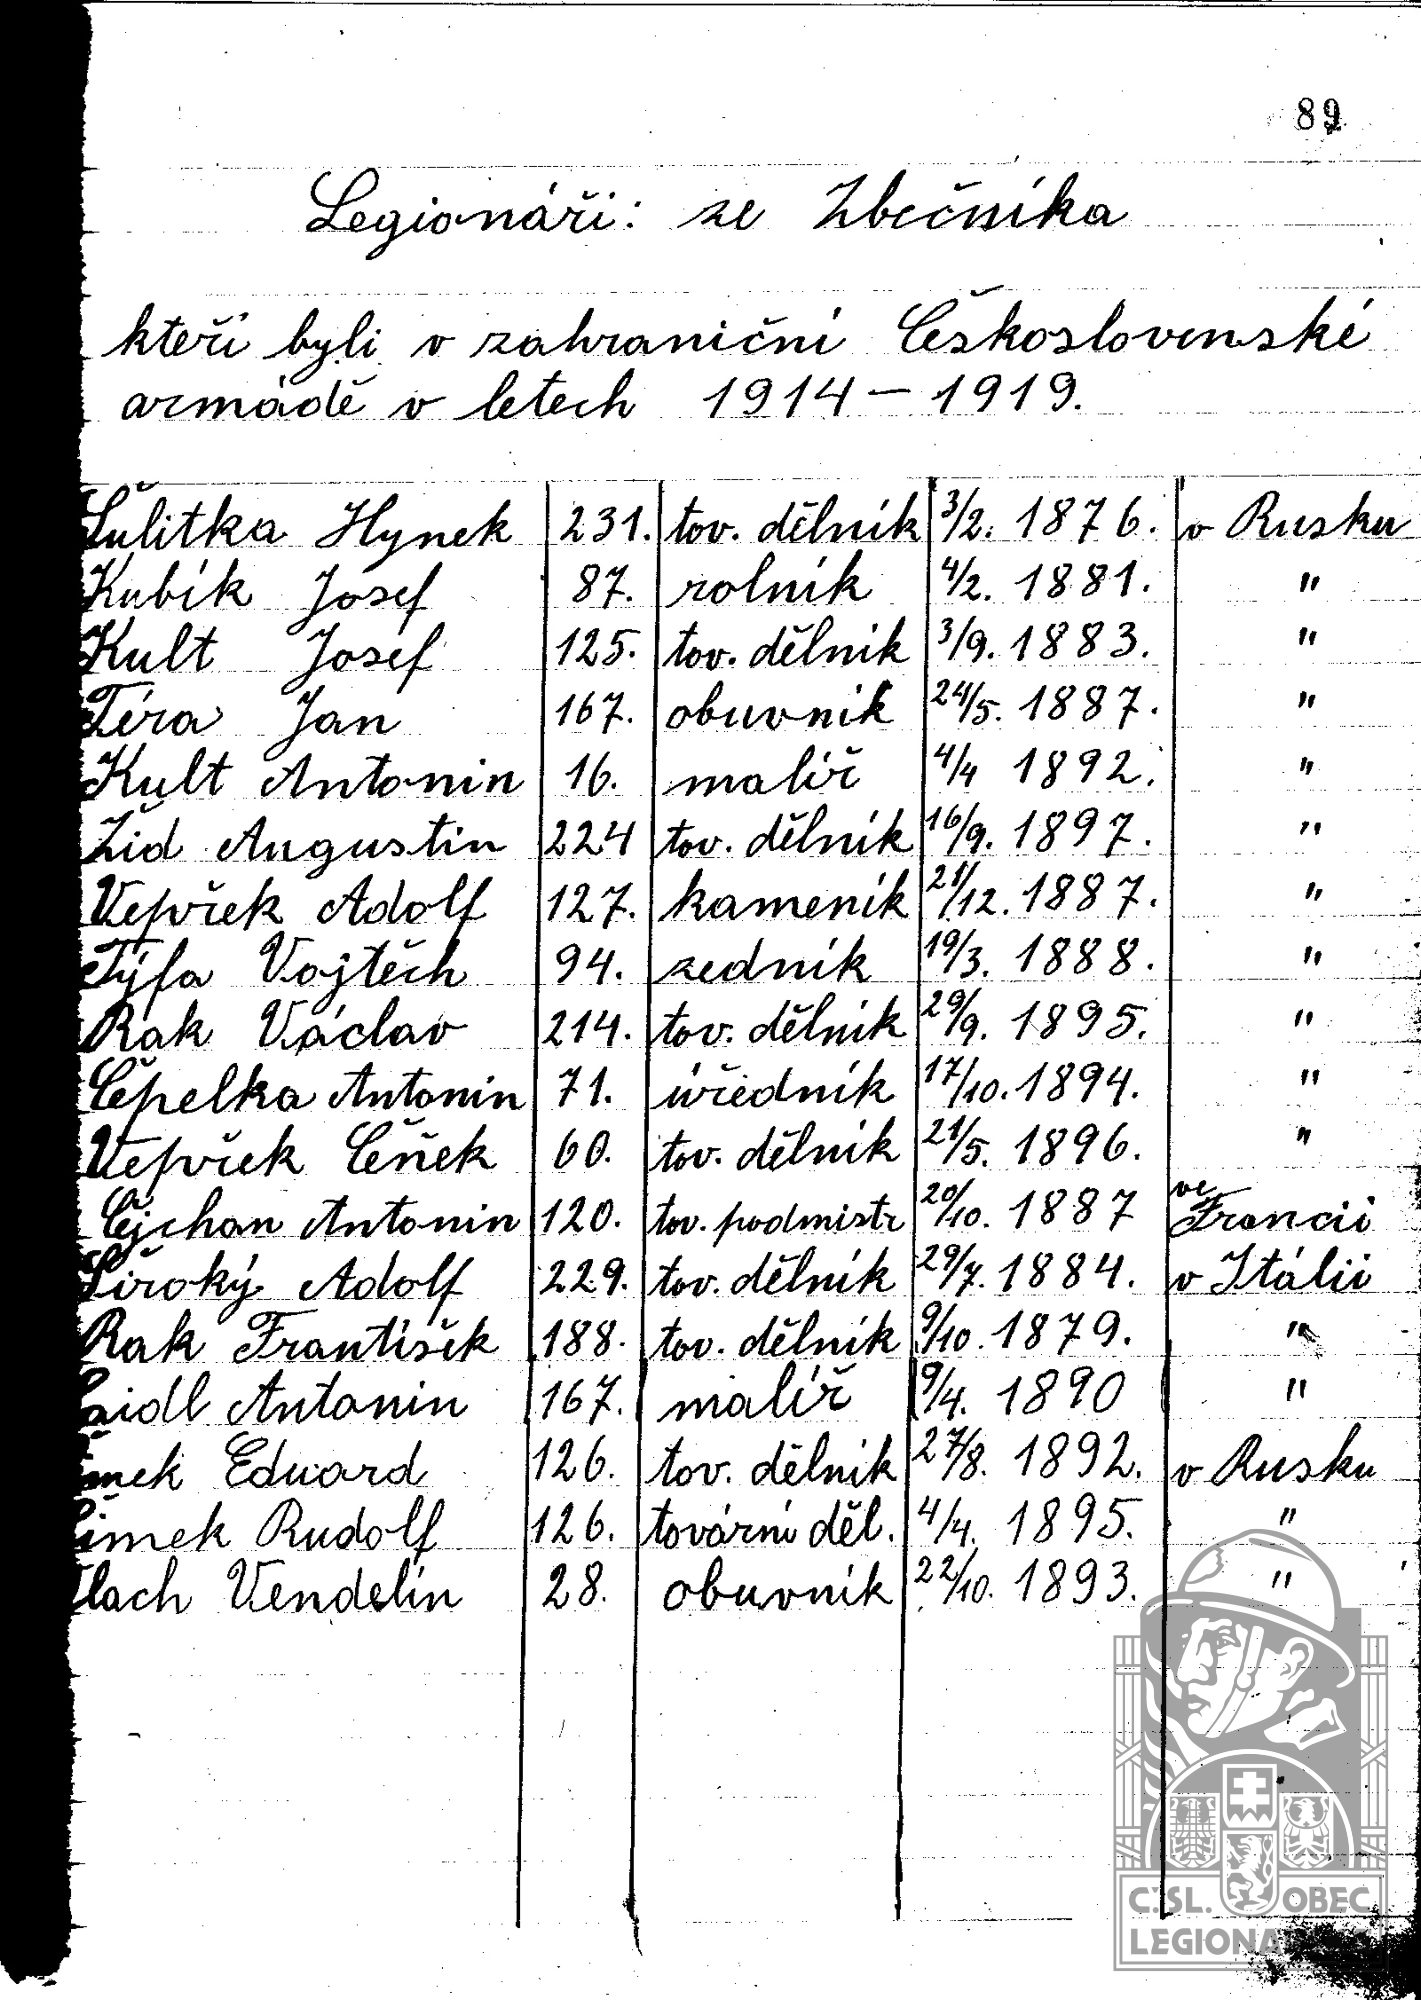 89
Legionáři: ze Zbečníka
kteří byli v zahraniční Československé
armádě v letech 1914 – 1919.
Šulitka Hynek 231. tov. dělník 3/2. 1876. v Rusku
Kubík Josef 87. rolník 4/2. 1881. "
Kult Josef 125. tov. dělník 3/9. 1883. "
Téra Jan 167. obuvník 24/5. 1887. "
Kult Antonin 16. malíř 4/4 1892. "
Žid Augustin 224 tov. dělník 16/9. 1897. "
Vepřek Adolf 127. kameník 21/12. 1887. "
Týfa Vojtěch 94. zedník 19/3. 1888. "
Rak Václav 214. tov. dělník 29/9. 1895. "
Čepelka Antonin 71. úředník 17/10. 1894. "
Vepřek Čeněk 60. tov. dělník 21/5. 1896. "
Čejchan Antonin 120. tov. podmistr 20/10. 1887 ve Francii
Široký Adolf 229. tov. dělník 29/7. 1884. v Itálii
Rak František 188. tov. dělník 9/10. 1879. "
Antonin 167. malíř 9/4. 1890 "
Eduard 126. tov. dělník 27/8. 1892. v Rusku
Šimek Rudolf 126. tovární děl. 4/4. 1895. "
Vendelín 28. obuvník 22/10. 1893. "
Č.SL. OBEC